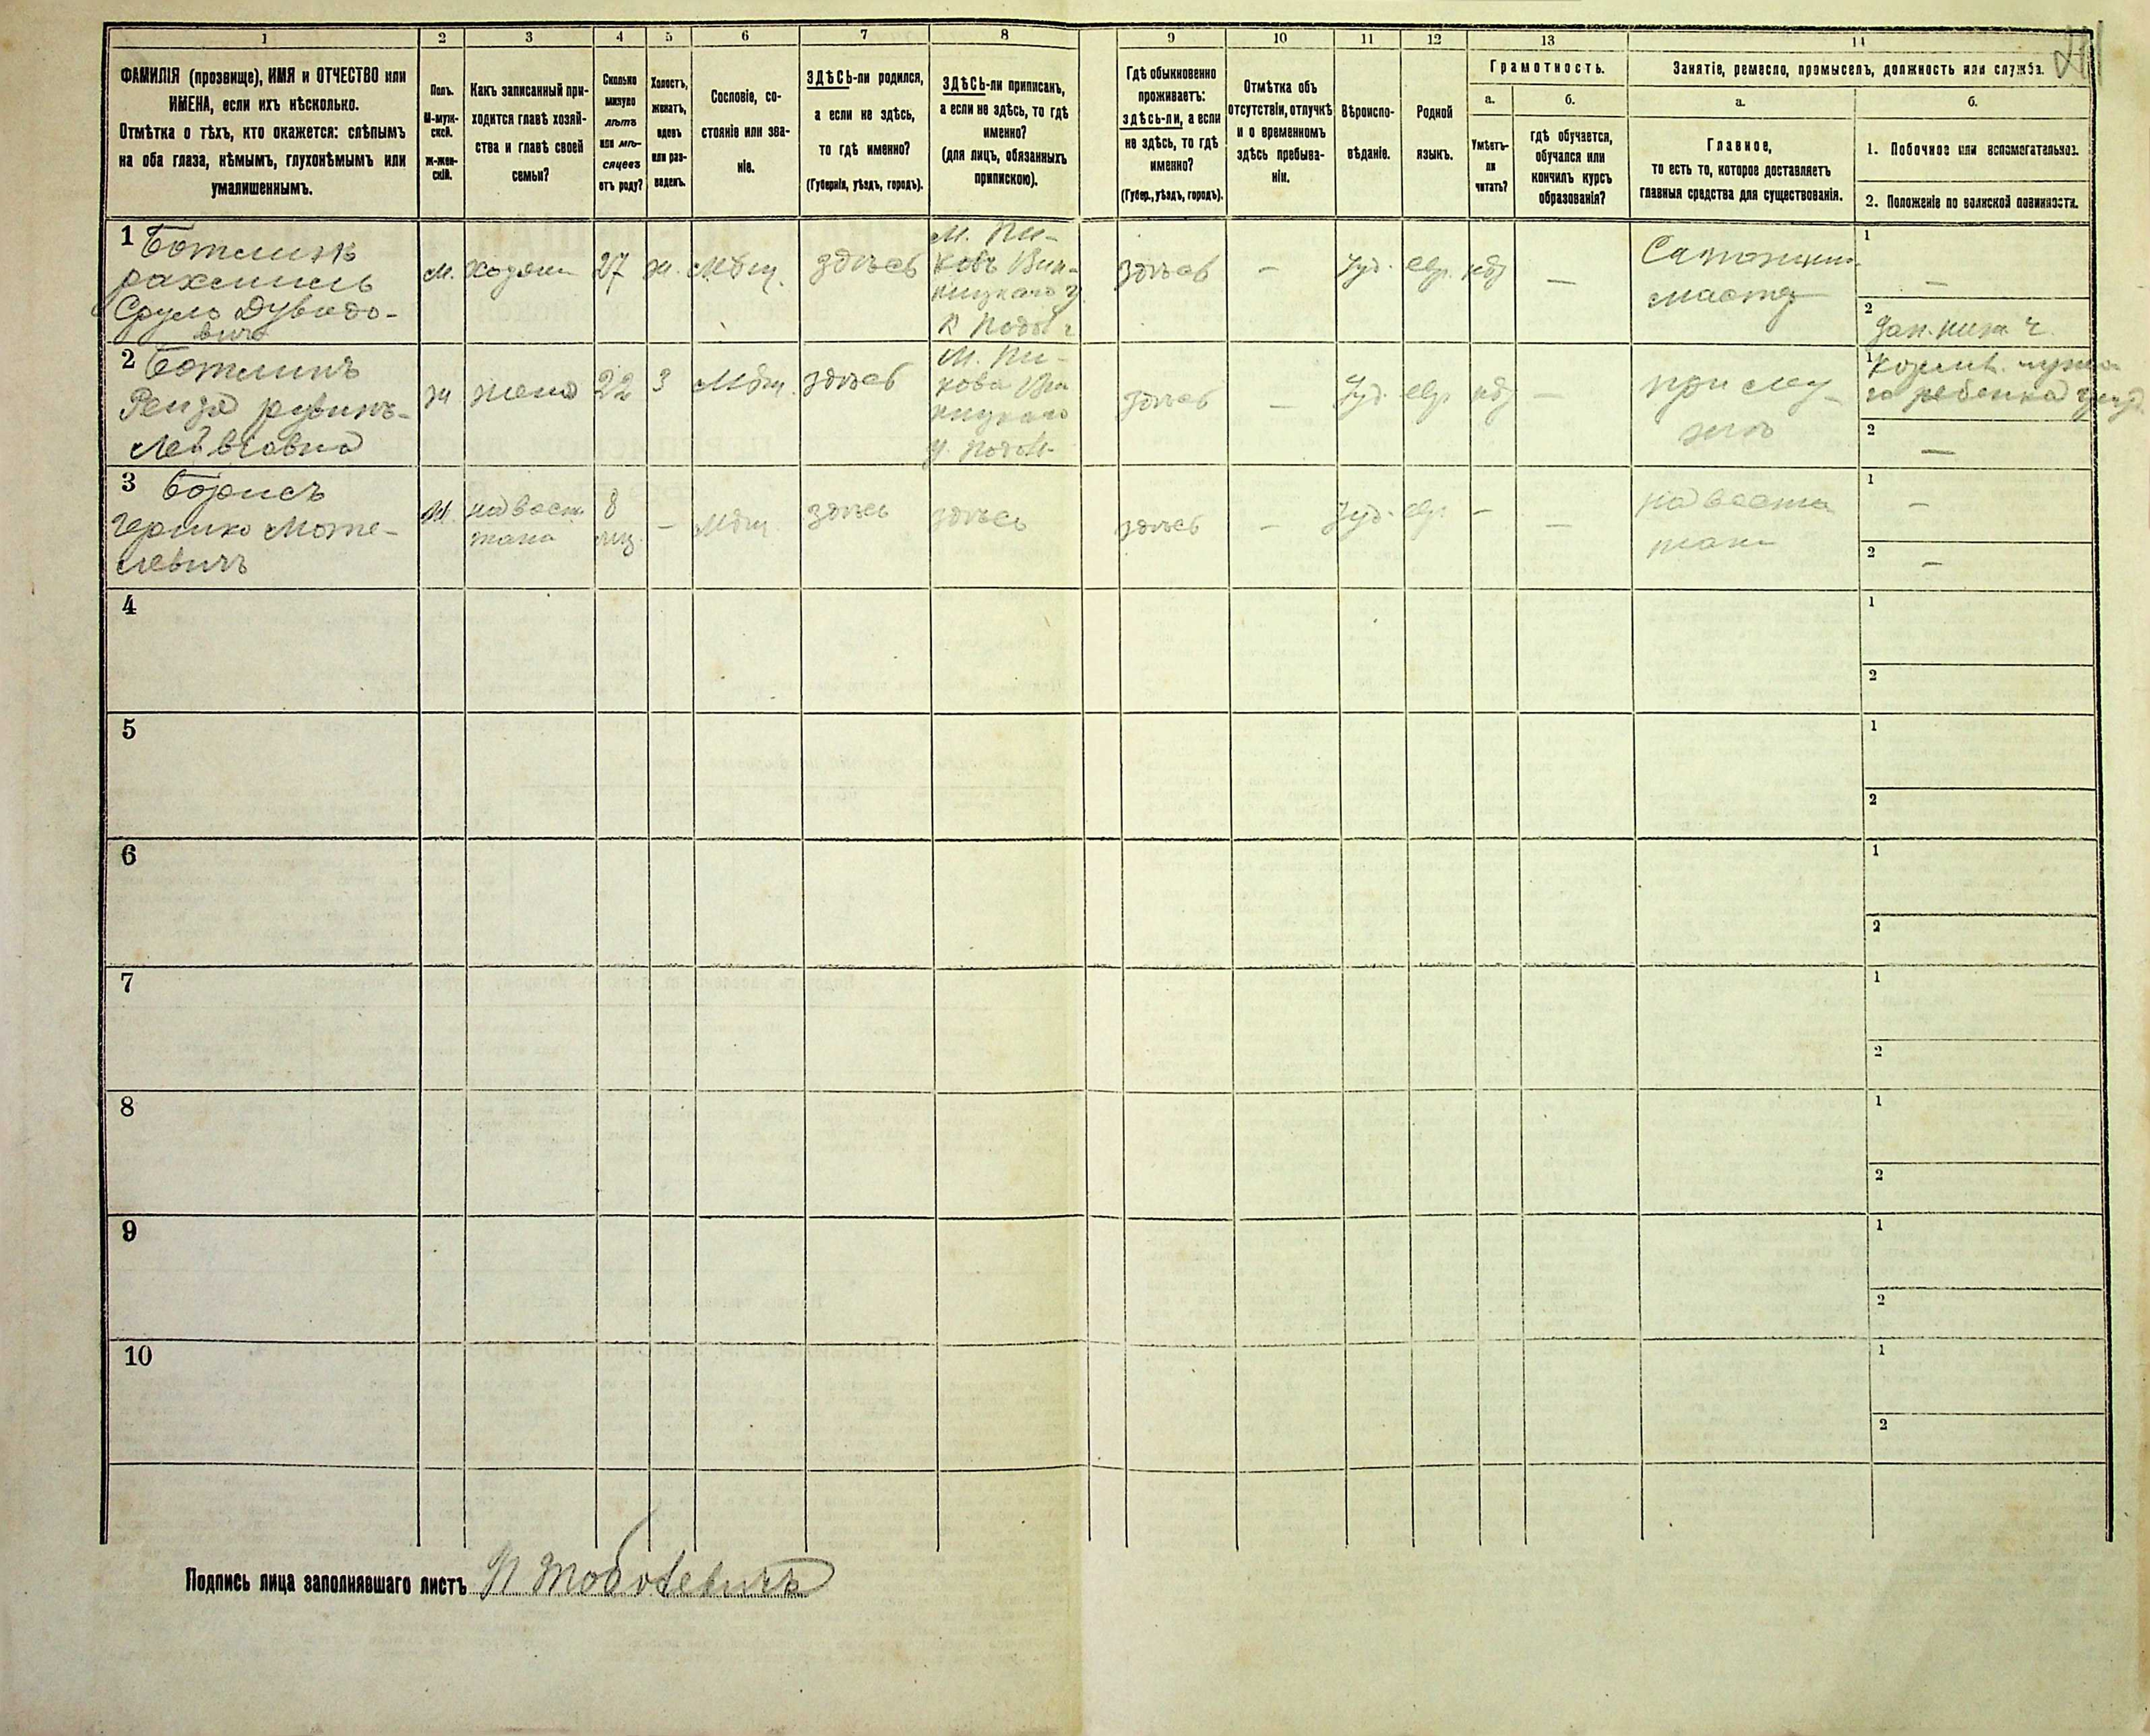 1 2 3 4 5 6 7 8 9 10 11 12 13 14
ФАМИЛІЯ (прозвище), ИМЯ и ОТЧЕСТВО или
ИМЕНА, если ихъ нѣсколько.
Отмѣтка о тѣхъ, кто окажется: слѣпымъ
на оба глаза, нѣмымъ, глухонѣмымъ или
умалишеннымъ.
Полъ.
М-муж-
ской.
Ж-жен-
скій.
Какъ записанный при-
ходится главѣ хозяй-
ства и главѣ своей
семьи?
Сколько
минуло
лѣтъ
или мѣ-
сяцевъ
отъ роду?
Холостъ,
женатъ,
вдовъ
или раз-
веденъ.
Сословіе, со-
стояніе или зва-
ніе.
ЗДѢСЬ-ли родился,
а если не здѣсь,
то гдѣ именно?
(Губернія, уѣздъ, городъ).
ЗДѢСЬ-ли приписанъ,
а если не здѣсь, то гдѣ
именно?
(для лицъ, обязанныхъ
припискою).
Гдѣ обыкновенно
проживаетъ:
здѣсь-ли, а если
не здѣсь, то гдѣ
именно?
(Губер., уѣздъ, городъ).
Отмѣтка объ
отсутствіи, отлучкѣ
и о временномъ
здѣсь пребыва-
ніи.
Вѣроиспо-
вѣданіе.
Родной
языкъ.
Грамотность.
а.
Умѣетъ-
ли
читать?
б.
гдѣ обучается,
обучался или
кончилъ курсъ
образованія?
Занятіе, ремесло, промыселъ, должность или служба.
а.
Главное,
то есть то, которое доставляетъ
главныя средства для существованія.
б.
1. Побочное или вспомогательное.
2. Положеніе по воинской повинности.
1
Срулъ Дувидо-
вичъ
м.
хозяин
27
ж.
Мѣщ.
здѣсь
М. Пи-
ковъ Вин-
ницкаго у
здѣсь
—
Іуд.
евр.
—
мастер
1
—
2
2
жена
22
з
Мѣщ.
здѣсь
М. Пи-
кова Ви
ницкаго
у. Подол.
здѣсь
—
Іуд.
евр.
—
при му
жѣ
1
ребенка
2
—
3 Борисъ
Гершко Моте-
левичъ
М.
8
—
Мѣщ
здѣсь
здѣсь
здѣсь
—
Іуд.
евр.
—
—
1
—
2
—
4
1
2
5
1
2
6
1
2
7
1
2
8
1
2
9
1
2
10
1
2
Подпись лица заполнявшаго листъ